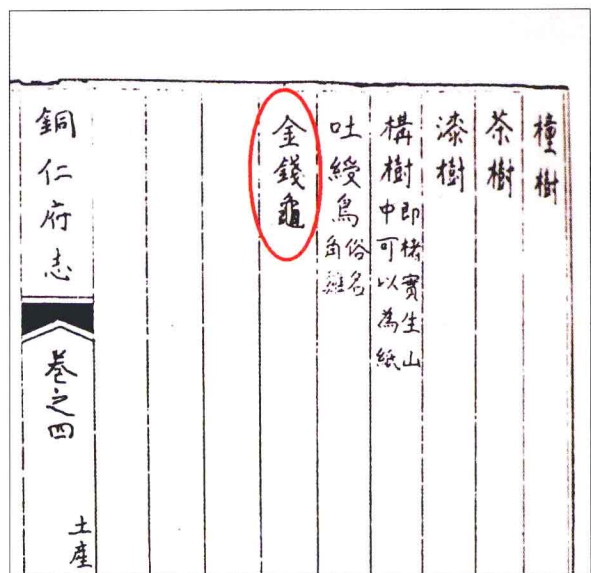 橦樹
茶樹
漆樹
構樹 即楮實生山中可以為紙
吐綬鳥 俗名角雞
金錢龜
銅仁府志
卷之四
土產